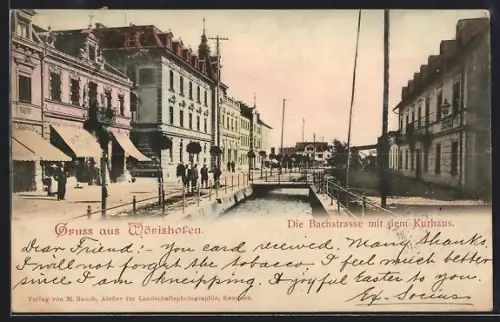 Gruss aus Wörishofen.
Die Bachstrasse mit dem Kurhaus.
Dear Friend! - You card received. Many thanks.
I will not forget the tobacco. I feel much better
since I am Kneipping. A joyful Easter to you.
Ex-Socius
Verlag von M. Bauch, Atelier für Landschaftsphotographie, Kempten.